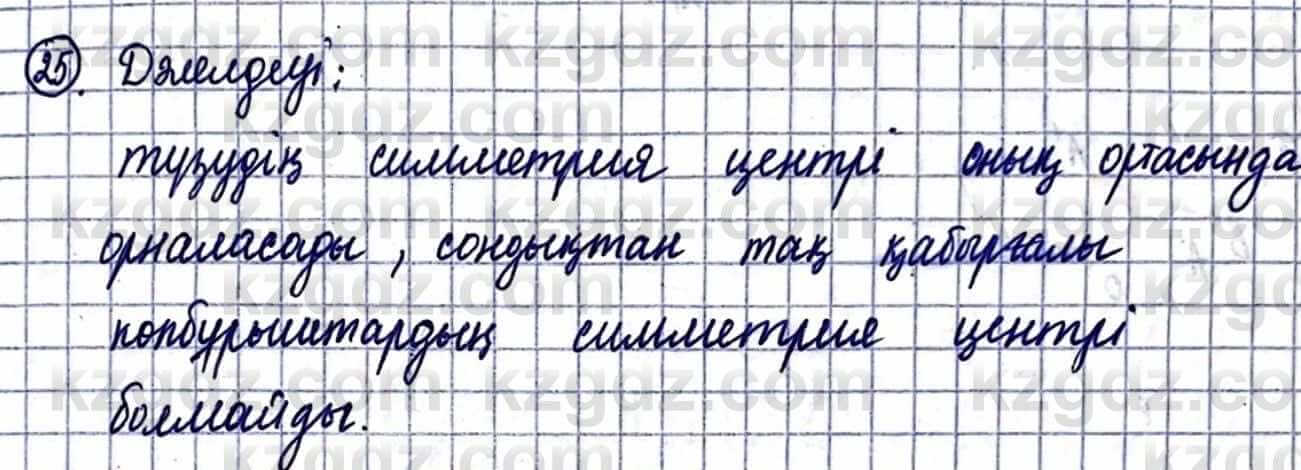 25. Дәлелдеуі:
түзудің симметрия центрі оның ортасында
орналасады, сондықтан тақ қабырғалы
көпбұрыштардың симметрия центрі
болмайды.